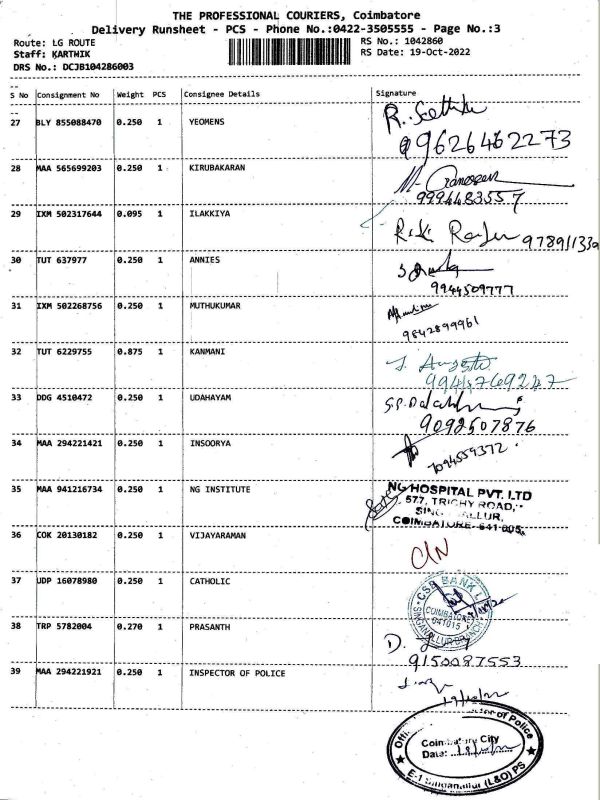 THE PROFESSIONAL COURIERS, Coimbatore
Delivery Runsheet - PCS - Phone No.:0422-3505555 - Page No.:3
Route: LG ROUTE
RS No.: 1042860
Staff: KARTHIK
RS Date: 19-Oct-2022
DRS No.: DCJB104286003
S No Consignment No Weight PCS Consignee Details Signature
27 BLY 855088470 0.250 1 YEOMENS
9626462273
28 MAA 565699203 0.250 1 KIRUBAKARAN
9994483557
29 IXM 502317644 0.095 1 ILAKKIYA
978911339
30 TUT 637977 0.250 1 ANNIES
9944509777
31 IXM 502268756 0.250 1 MUTHUKUMAR
9842899961
32 TUT 6229755 0.875 1 KANMANI
33 DDG 4510472 0.250 1 UDAHAYAM
9092507876
34 MAA 294221421 0.250 1 INSOORYA
7094559372
35 MAA 941216734 0.250 1 NG INSTITUTE
NG HOSPITAL PVT. LTD
577, TRICHY ROAD,
COIMBATORE- 641 005.
36 COK 20130182 0.250 1 VIJAYARAMAN
C/N
37 UDP 16078980 0.250 1 CATHOLIC
CSB BANK
COIMBATORE
641015
SINGANALLUR BRANCH
38 TRP 5782004 0.270 1 PRASANTH
D.
9150087553
39 MAA 294221921 0.250 1 INSPECTOR OF POLICE
of Police
Coimbatore City
Date:
E-1 Singanallur (L&O) PS